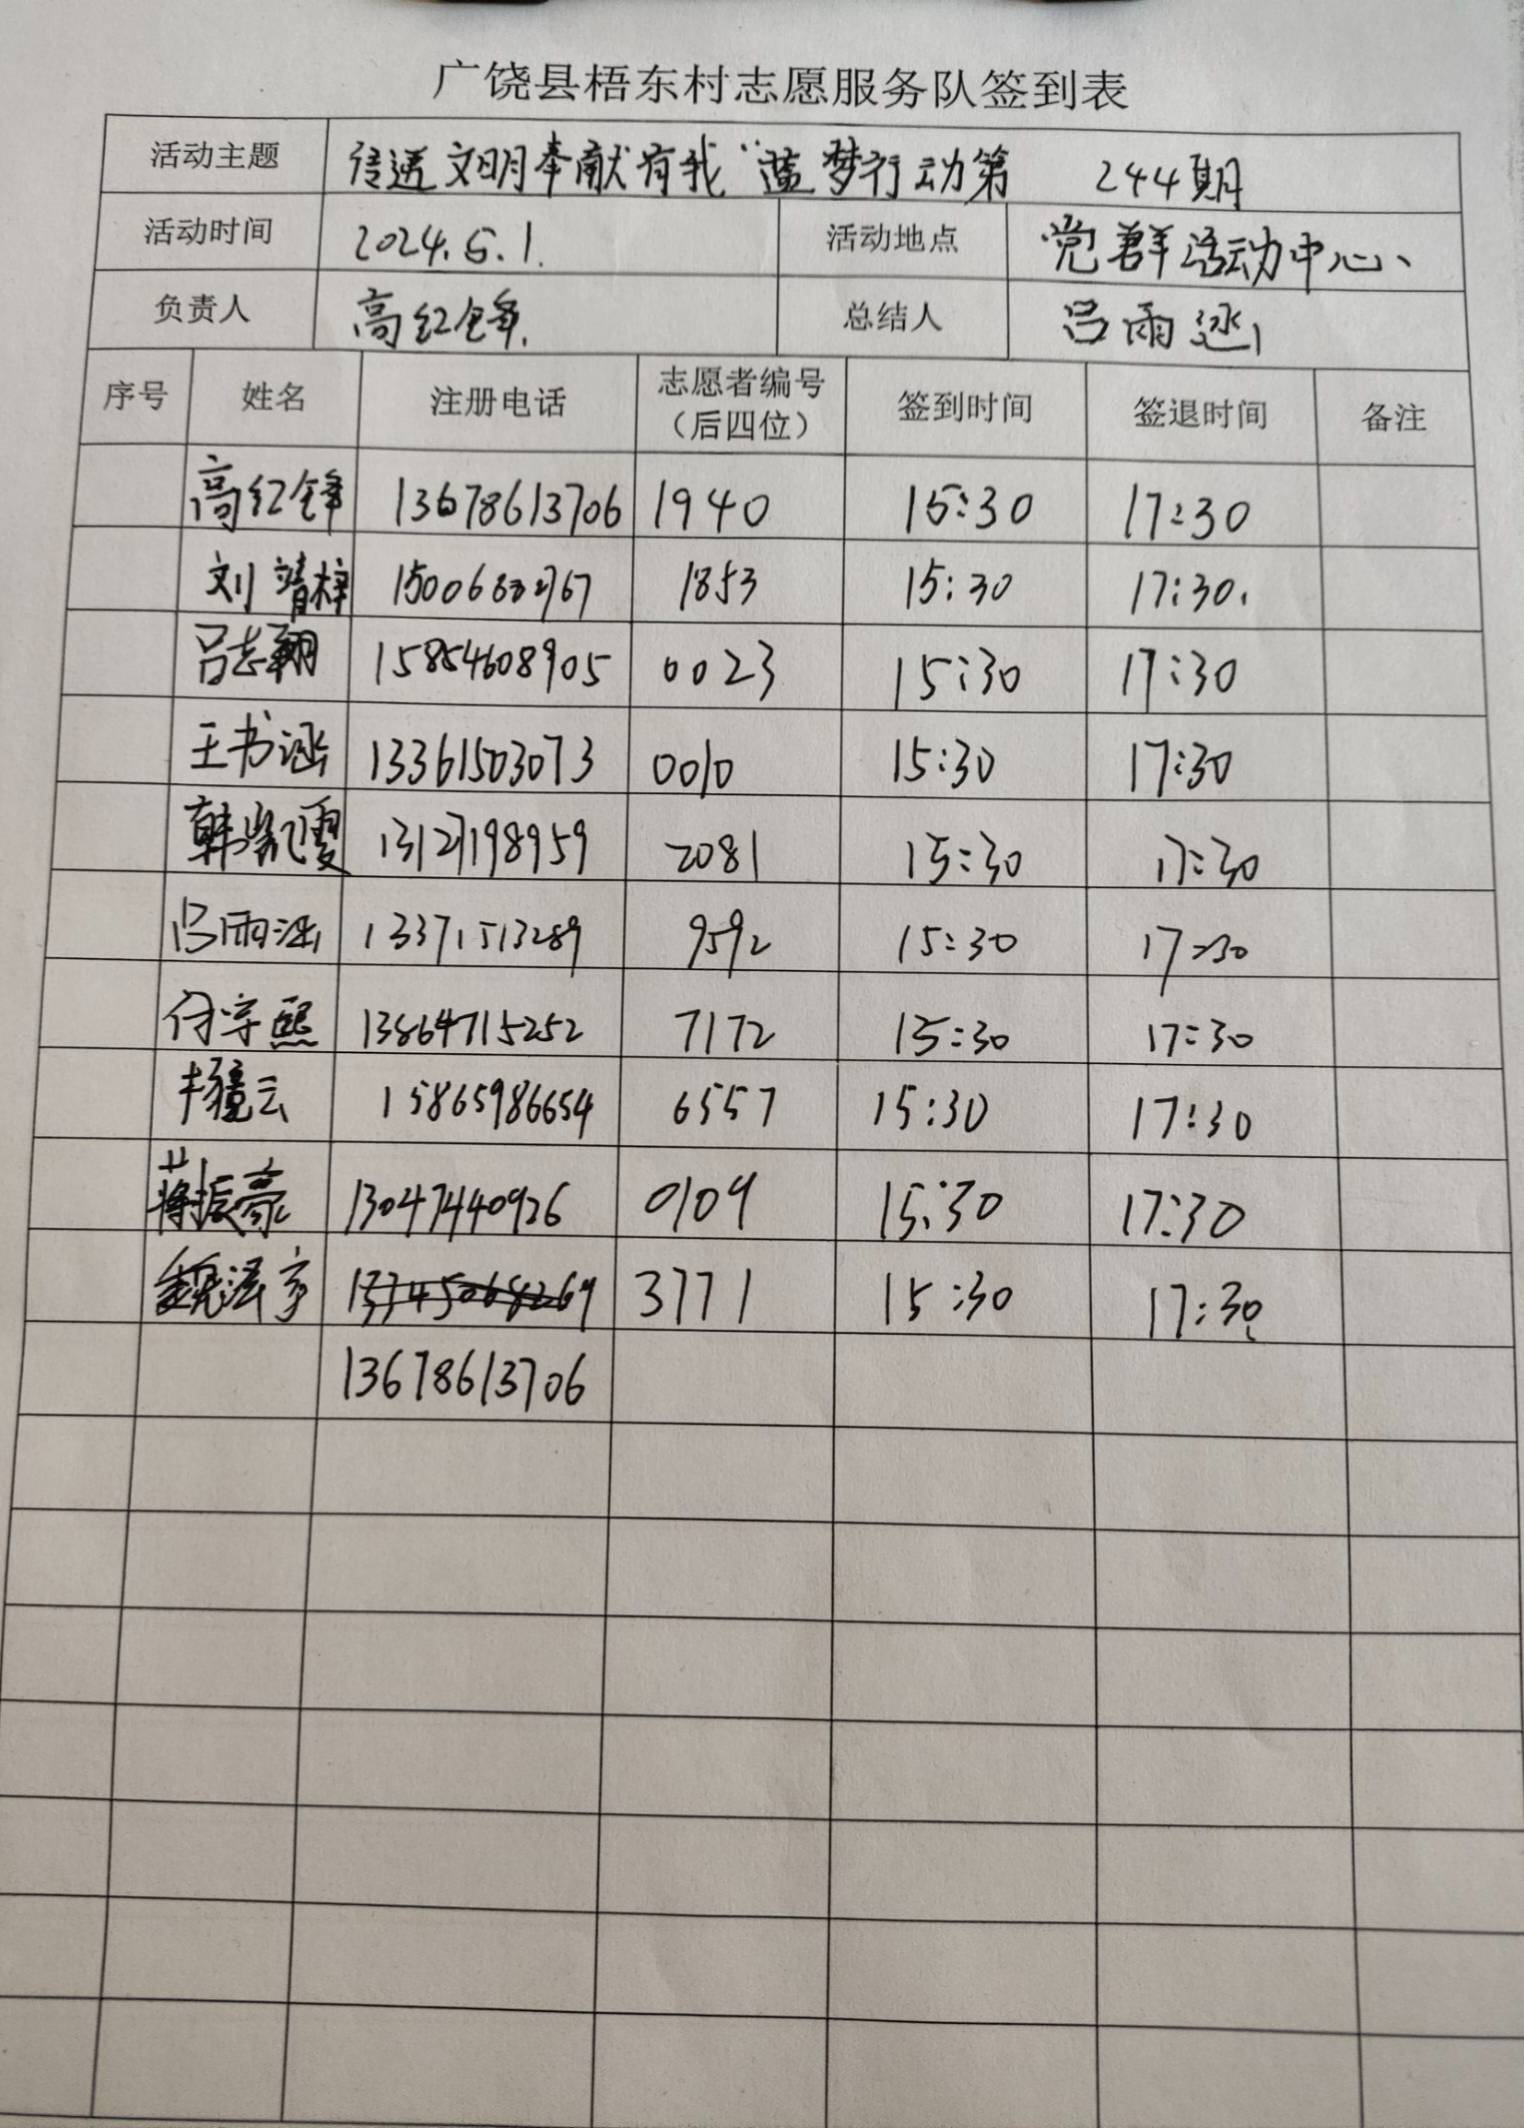 广饶县梧东村志愿服务队签到表
活动主题 传递文明奉献有我“蓝梦行动第 244期
活动时间 2024.5.1. 活动地点 党群活动中心、
负责人 高红锋. 总结人 吕雨涵
序号 姓名 注册电话 志愿者编号 签到时间 签退时间 备注
（后四位）
高红锋 13678613706 1940 15:30 17:30
刘靖梓 1853 15:30 17:30.
吕志翱 15854608905 0023 15:30 17:30
王书涵 13361503073 0010 15:30 17:30
韩 13127198959 2081 15:30 17:30
吕雨涵 13371513289 9592 15:30 17:30
付宇熙 13864715252 7172 15:30 17:30
云 15865986654 6557 15:30 17:30
蒋振豪 13047440926 0109 15:30 17:30
魏泽宇 3771 15:30 17:30
13678613706